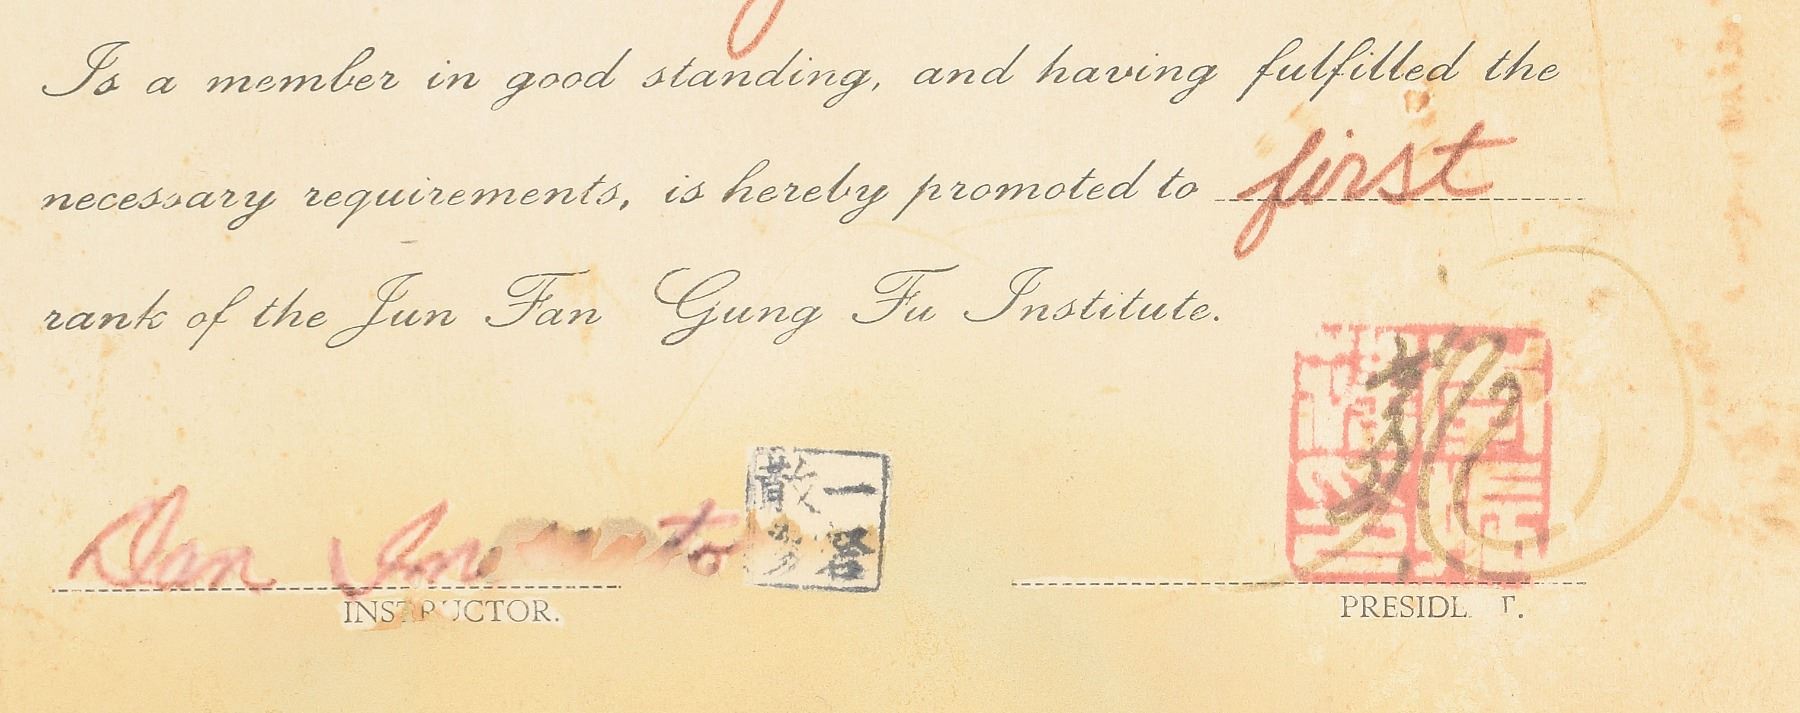 Is a member in good standing, and having fulfilled the
necessary requirements, is hereby promoted to first
rank of the Jun Fan Gung Fu Institute.
Dan
INSTRUCTOR.